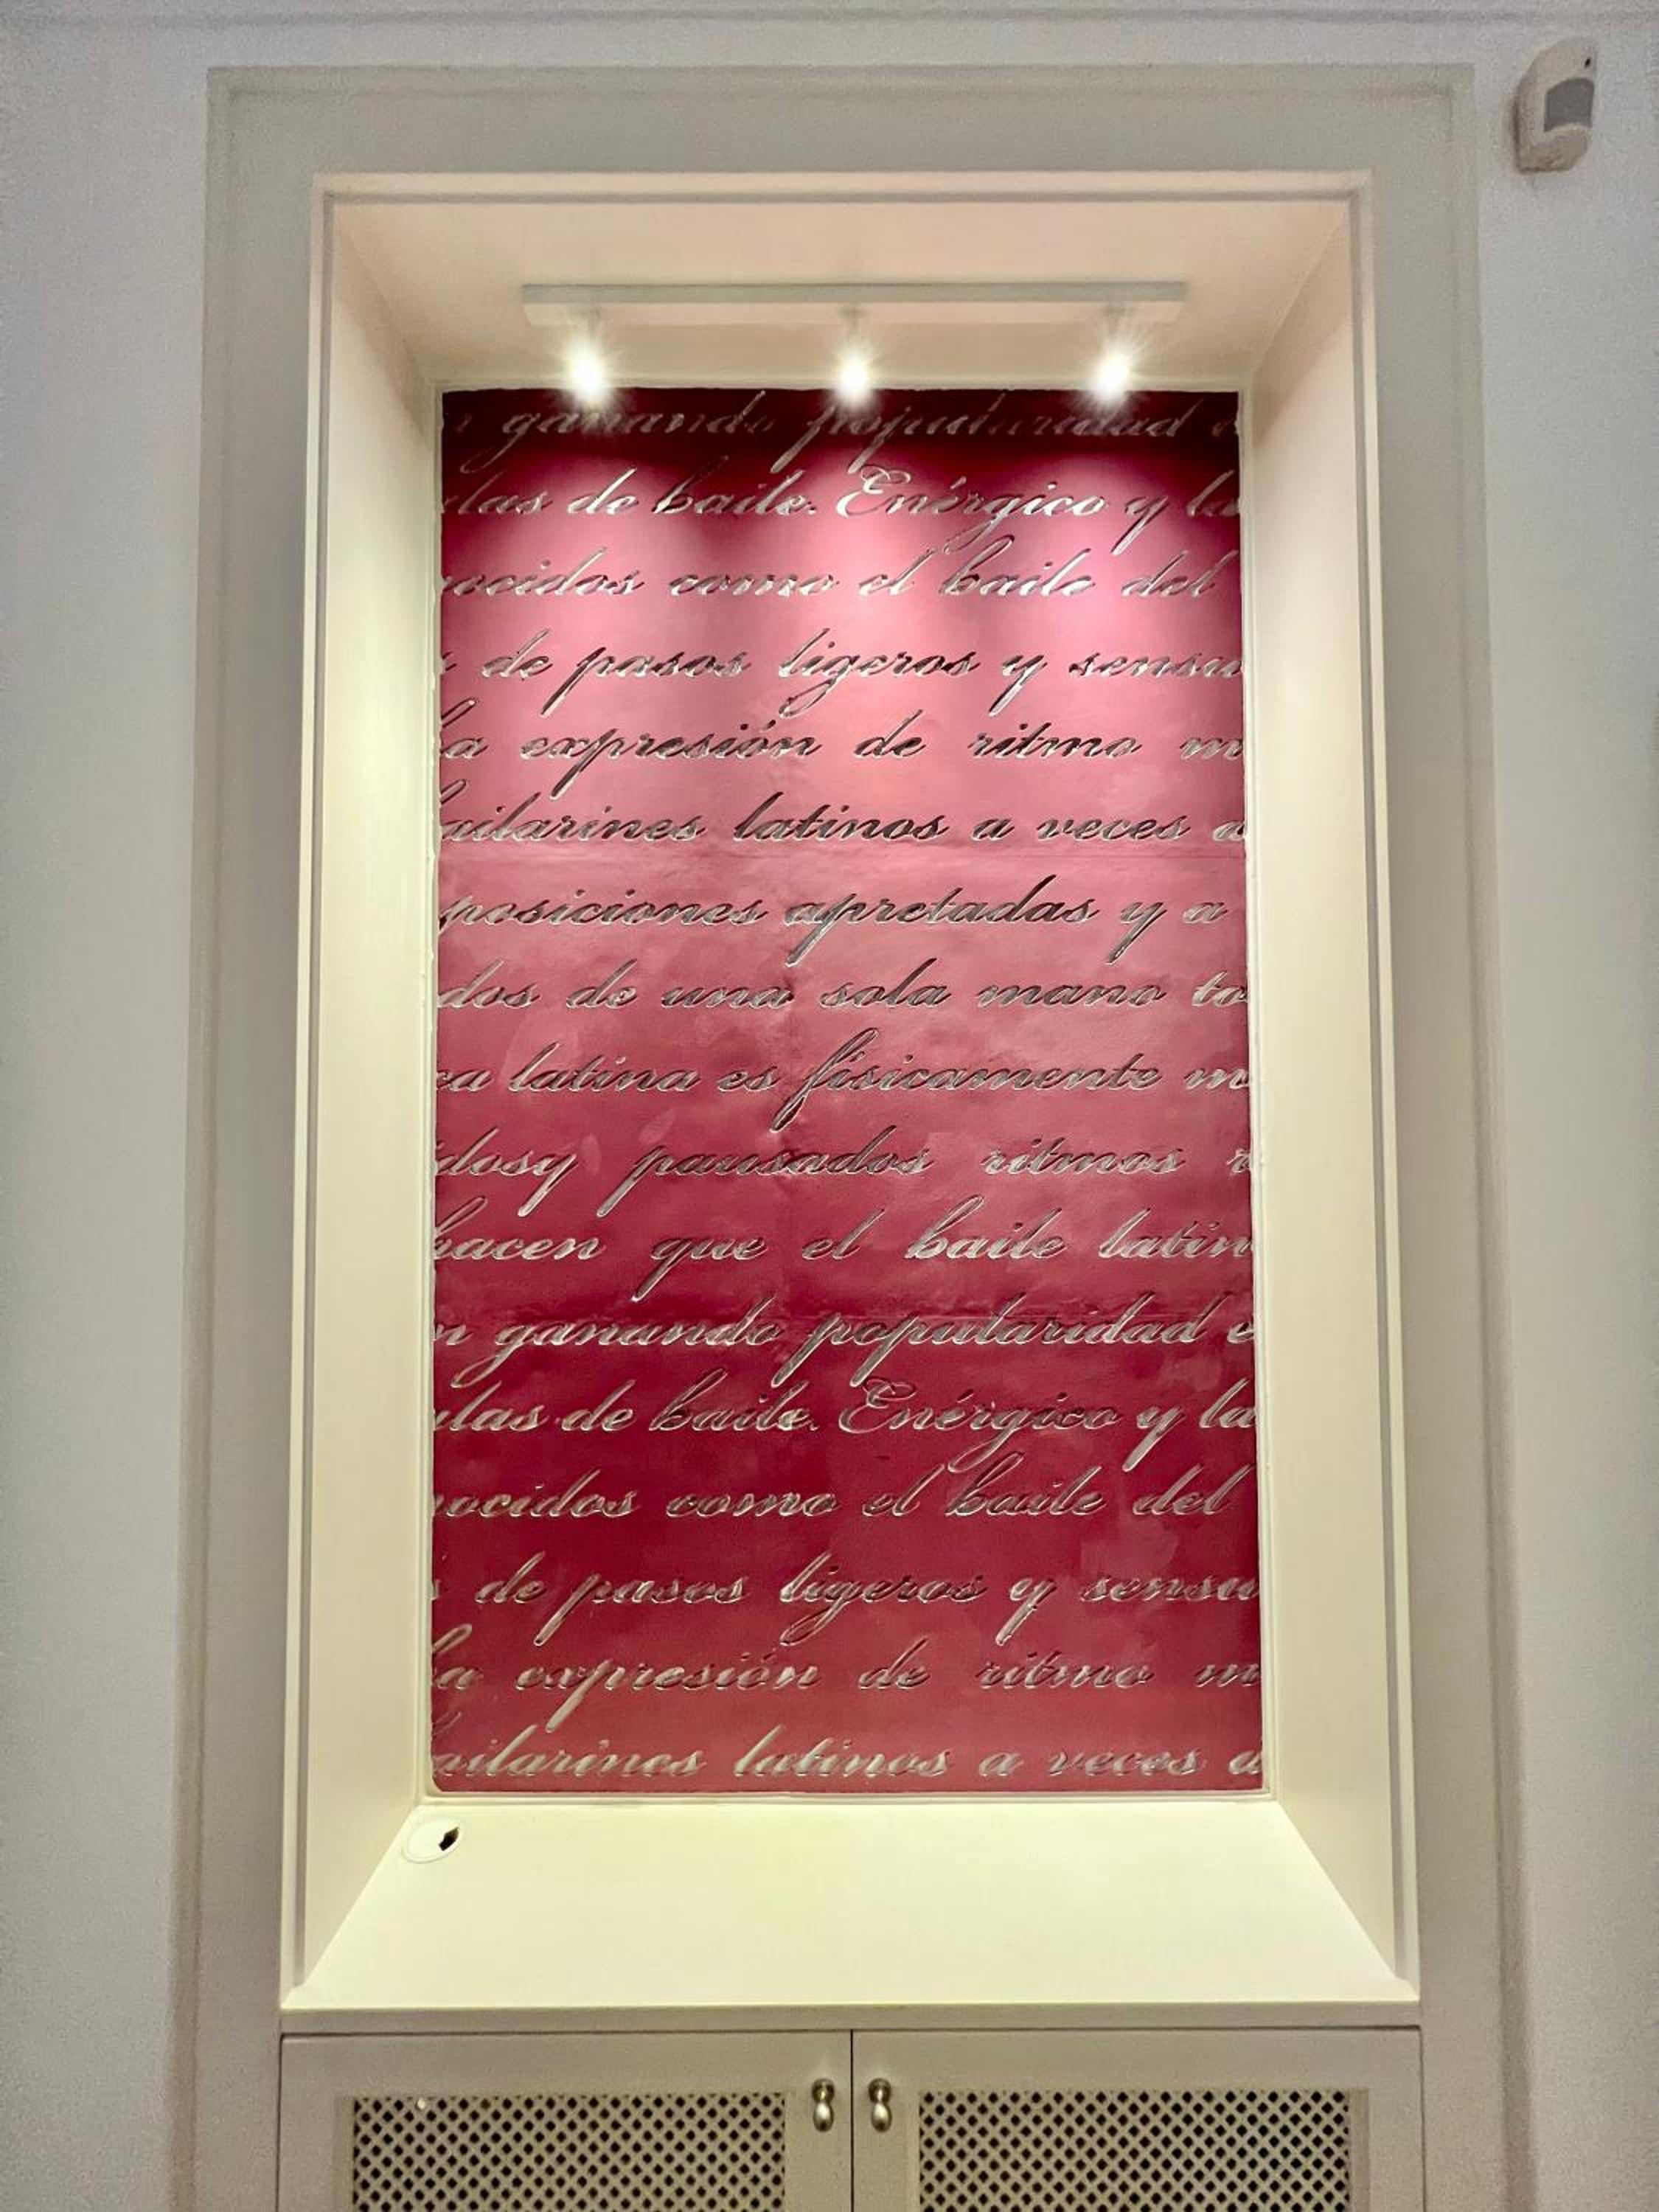 n ganando popularidad e
ulas de baile. Enérgico y la
nocidos como el baile del
s de pasos ligeros y sensu
la expresión de ritmo m
bailarines latinos a veces a
posiciones apretadas y a
dos de una sola mano to
ca latina es físicamente m
idosy pausados ritmos r
hacen que el baile latin
n ganando popularidad e
ulas de baile. Enérgico y la
nocidos como el baile del
s de pasos ligeros y sensu
la expresión de ritmo m
bailarines latinos a veces a